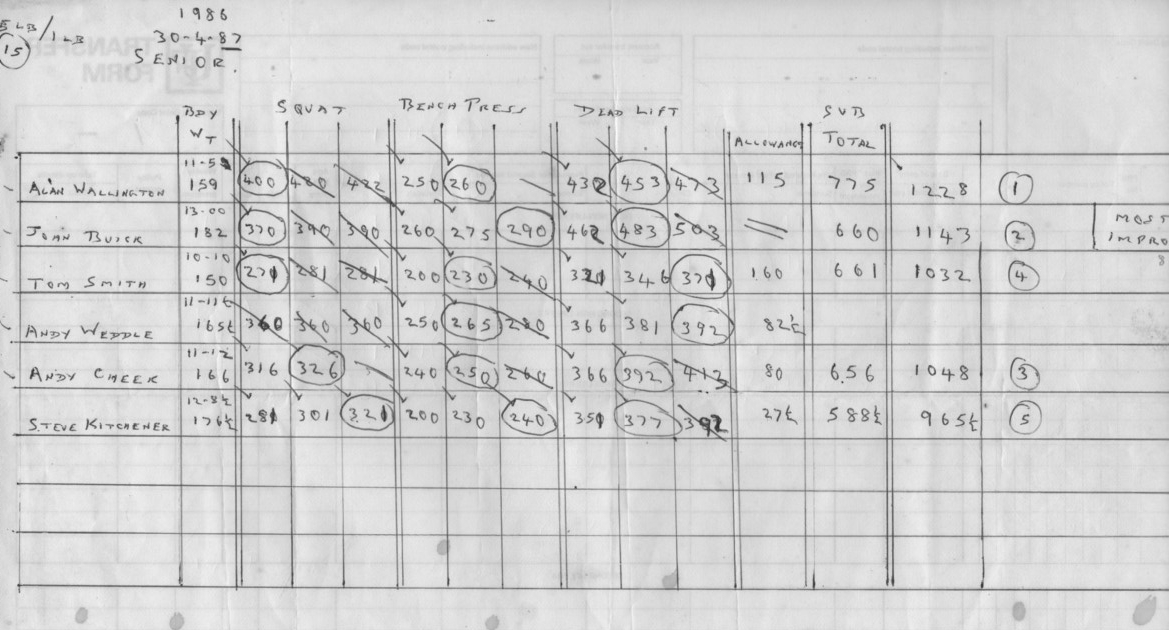 1986
5 LB/1 LB
30-4-87
15
SENIOR
TRANSFER
FORM
BDY WT SQUAT BENCH PRESS DEAD LIFT ALLOWANCE SUB TOTAL
11-5
ALAN WALLINGTON 159 400 400 422 250 260 432 453 473 115 775 1228 1
13-00
JOHN BUICK 182 370 390 390 260 275 290 462 483 503 660 1143 2 MOST IMPRO
10-10
TOM SMITH 150 271 281 281 200 230 240 321 346 371 160 661 1032 4
11-11½
ANDY WEDDLE 165½ 360 360 360 250 265 280 366 381 392 82½
11-12
ANDY CHEEK 166 316 326 240 250 260 366 392 413 80 656 1048 3
12-8½
STEVE KITCHENER 176½ 281 301 321 200 230 240 351 377 392 27½ 588½ 965½ 5